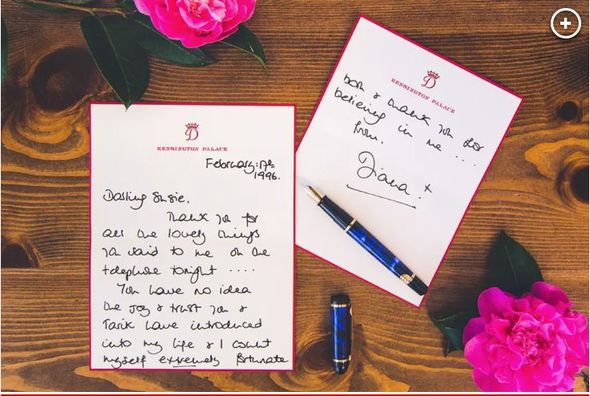 D
KENSINGTON PALACE
February: 
1996.
Darling Susie,
Thank you for
all the lovely things
you said to me on the
telephone tonight ....
You have no idea
the joy & trust you &
Tarik have introduced
into my life & I count
myself extremely fortunate
D
KENSINGTON PALACE
both & thank you for
believing in me ....
from,
Diana x